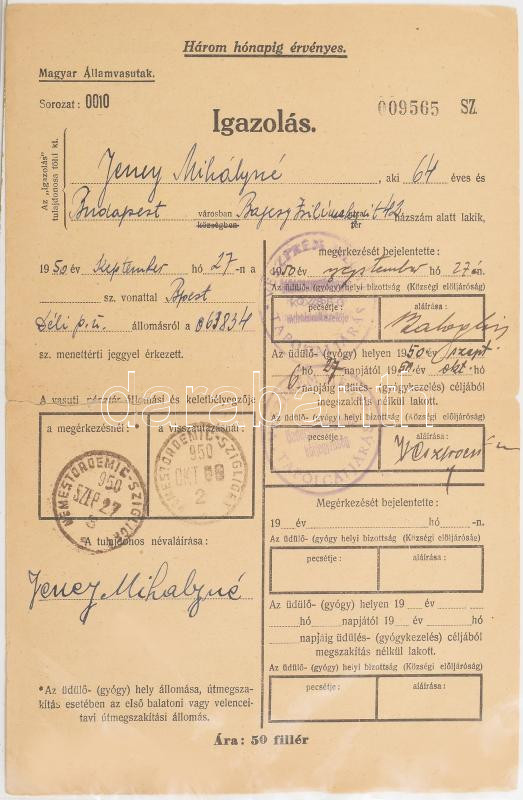 Három hónapig érvényes.
Magyar Államvasutak.
Sorozat: 0010
009565 SZ.
Igazolás.
Az „igazolás"
tulajdonosa tölti ki.
Jeney Mihályné, aki 64 éves és
Budapest városban 42 házszám alatt lakik,
községben tér
1950 év szeptember hó 27-n a
sz. vonattal Bpest
Déli p.u. állomásról a 063834
sz. menettérti jeggyel érkezett.
A vasuti pénztár állomási és keletbélyegzője
a megérkezésnél: a visszautazásnál:
NEMESTÖRDEMIC-SZIGLIGET
950
SZEP 27
NEMESTÖRDEMIC-SZIGLIGET
950
OKT
2
A tulajdonos névaláírása:
Jeney Mihályné
*Az üdülő- (gyógy) hely állomása, útmegsza-
kítás esetében az első balatoni vagy velencei-
tavi útmegszakítási állomás.
megérkezését bejelentette:
1950 év szeptember hó 27-én.
Az üdülő- (gyógy) helyi bizottság (Községi elöljáróság)
pecsétje: aláírása:
TAPOLCAI JÁRÁS
Az üdülő- (gyógy) helyen 1950 év szept
hó 27 napjától 1950 év okt hó
6 napjáig üdülés- (gyógykezelés) céljából
megszakítás nélkül lakott.
Az üdülő- (gyógy) helyi bizottság (Községi elöljáróság)
pecsétje: aláírása:
TAPOLCAI JÁRÁS
Megérkezését bejelentette:
19 év hó -n.
Az üdülő- (gyógy) helyi bizottság (Községi elöljáróság)
pecsétje: aláírása:
Az üdülő- (gyógy) helyen 19 év
hó napjától 19 év hó
napjáig üdülés- (gyógykezelés) céljából
megszakítás nélkül lakott.
Az üdülő- (gyógy) helyi bizottság (Községi elöljáróság)
pecsétje: aláírása:
Ára: 50 fillér
darabanth